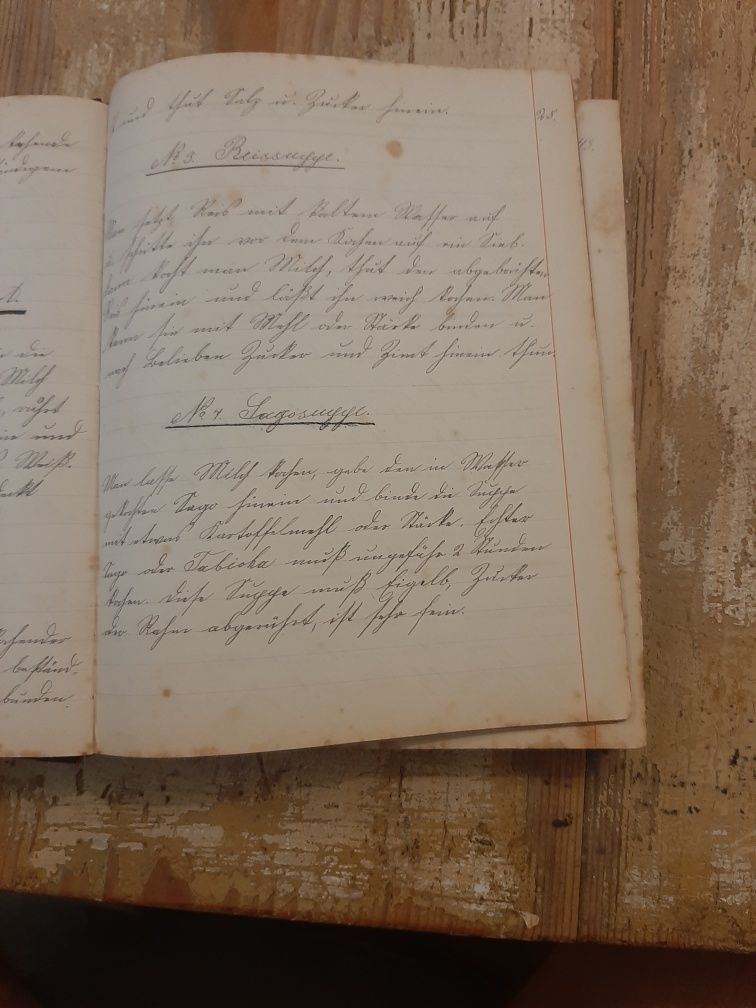 kochende
und thut Salz u. Zucker hinein.
25.
No 3. Reissuppe.
Man setzt Reis mit kaltem Wasser auf
u. schütte ihn vor dem Kochen auf ein Sieb.
Dann kocht man Milch, thut den abgebrühten
Reis hinein und läßt ihn weich kochen. Man
kann sie mit Mehl oder Stärke binden u.
nach Belieben Zucker und Zimt hinein thun.
No 4. Sagosuppe.
Man lasse Milch kochen, gebe den in Wasser
gekochten Sago hinein und binde die Suppe
mit etwas Kartoffelmehl oder Stärke. Echter
Sago oder Tabioka muß ungefähr 2 Stunden
kochen. Diese Suppe muß Eigelb, Zucker
oder Rahm abgerührt, ist sehr fein.
die
Milch
rührt
und
Weiß.
kochender
beständ-
bunden.